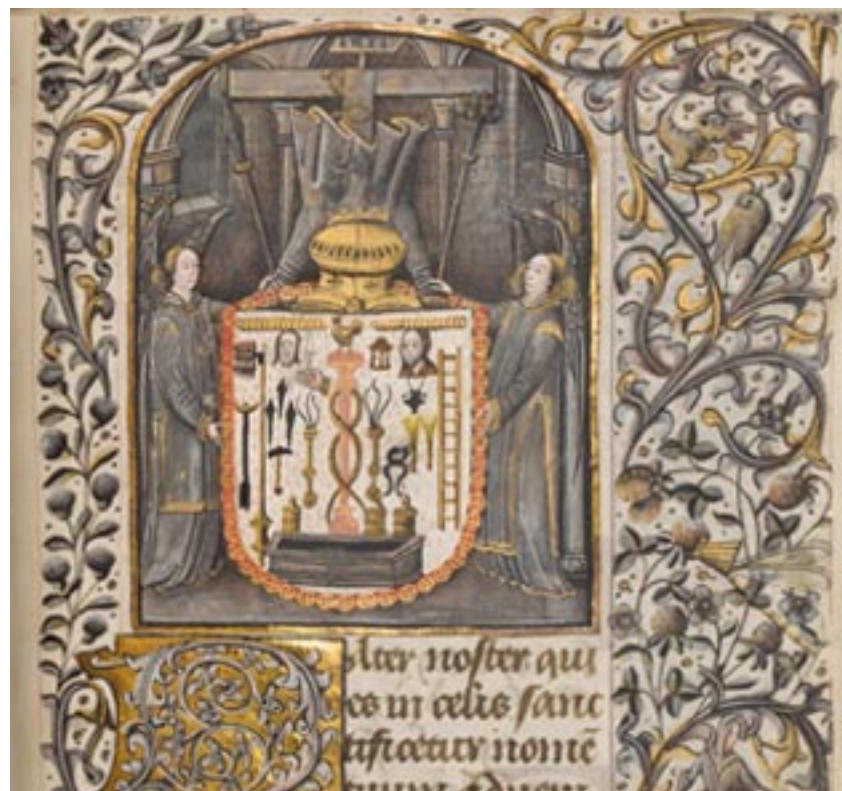 Pater noster qui
es in celis sanc
tificetur nomē